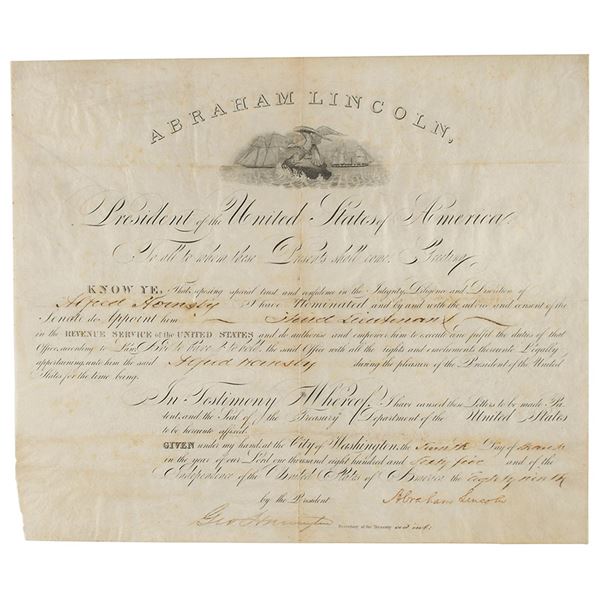 ABRAHAM LINCOLN,
President of the United States of America.
To all to whom these Presents shall come, Greeting:
KNOW YE, That reposing special trust and confidence in the Integrity, Diligence and Discretion of
Alfred Hornsby I have Nominated and by and with the advice and consent of the
Senate do Appoint him Third Lieutenant
in the REVENUE SERVICE of the UNITED STATES and do authorise and empower him to execute and fulfil the duties of that
Office according to Law, And to Have & to Hold, the said Office with all the rights and emoluments thereunto Legally
appertaining, unto him the said Alfred Hornsby during the pleasure of the President of the United
States for the time being.
In Testimony Whereof, I have caused these Letters to be made Pa-
tent, and the Seal of the Treasury Department of the United States
to be hereunto affixed.
GIVEN under my hand, at the City of Washington, the Day of March
in the year of our Lord one thousand eight hundred and Sixty five and of the
Independence of the United States of America the eighty ninth
by the President Abraham Lincoln
Geo Harrington Secretary of the Treasury